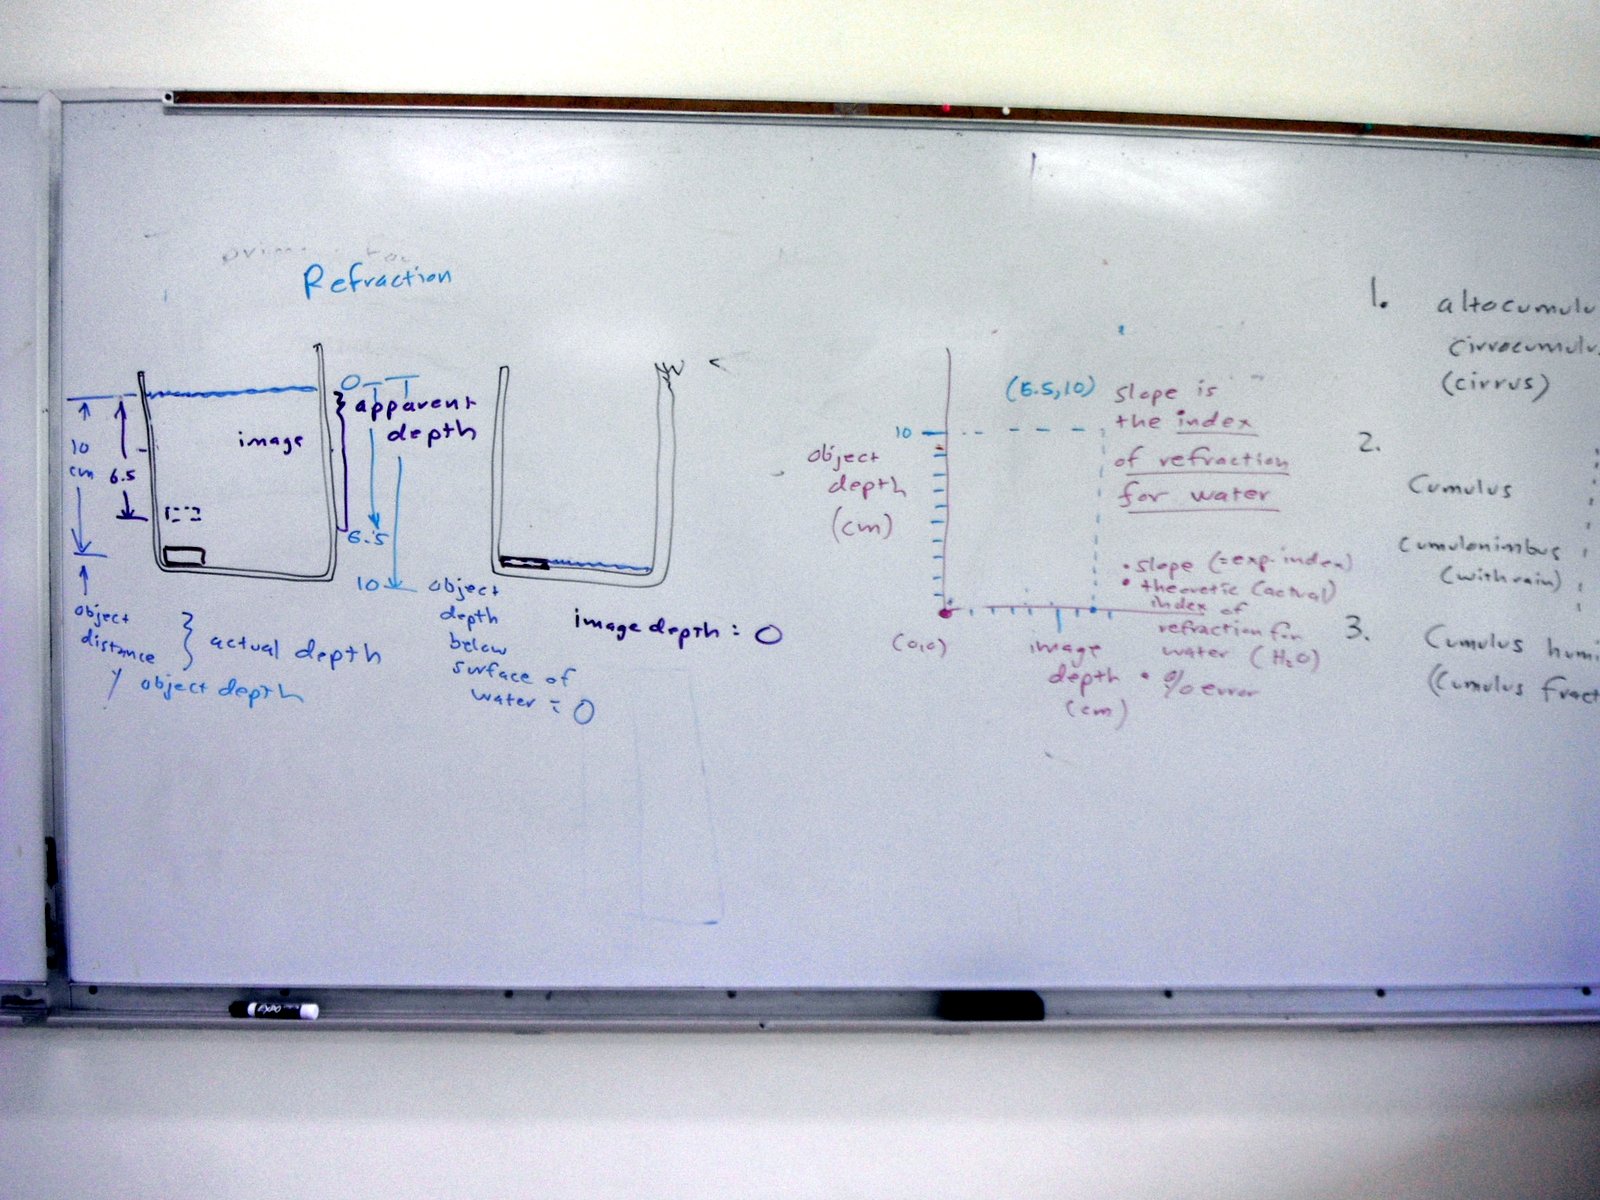 Refraction
image
10
cm
6.5
0
apparent
depth
6.5
10
object
distance
actual depth
object depth
object
depth
below
surface of
water = 0
image depth = 0
(6.5, 10)
10
object
depth
(cm)
(0,0)
image
depth
(cm)
slope is
the index
of refraction
for water
• slope (= exp. index)
• theoretic (actual)
index of
refraction for
water (H₂O)
• % error
1. altocumulu
cirrocumulu
(cirrus)
2.
Cumulus
Cumulonimbus
(with rain)
3.
Cumulus humi
(Cumulus fract
EXPO